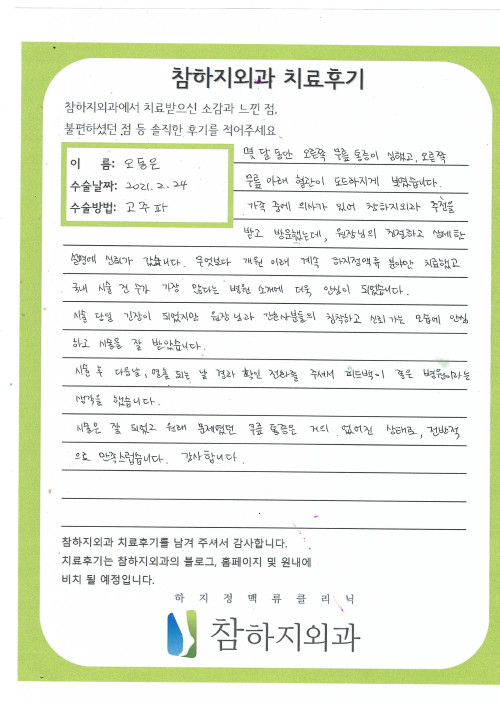 참하지외과 치료후기
참하지외과에서 치료받으신 소감과 느낀 점,
불편하셨던 점 등 솔직한 후기를 적어주세요
이 름: 오동은
수술날짜: 2021. 2. 24
수술방법: 고주파
몇 달 동안 오른쪽 무릎 통증이 심했고, 오른쪽
무릎 아래 혈관이 도드라지게 보였습니다.
가족 중에 의사가 있어 참하지외과 추천을
받고 방문했는데, 원장님의 친절하고 상세한
설명에 신뢰가 갔습니다. 무엇보다 개원 이래 계속 하지정맥류 분야만 치료했고
국내 시술 건 수가 가장 많다는 병원 소개에 더욱 안심이 되었습니다.
시술 당일 긴장이 되었지만 원장님과 간호사분들의 침착하고 신뢰가는 모습에 안심
하고 시술을 잘 받았습니다.
시술 후 다음날, 열흘 되는 날 경과 확인 전화를 주셔서 피드백이 좋은 병원이라는
생각을 했습니다.
시술은 잘 되었고 원래 문제였던 무릎 통증은 거의 없어진 상태로, 전반적
으로 만족스럽습니다. 감사합니다.
참하지외과 치료후기를 남겨 주셔서 감사합니다.
치료후기는 참하지외과의 블로그, 홈페이지 및 원내에
비치 될 예정입니다.
하지정맥류클리닉
참하지외과